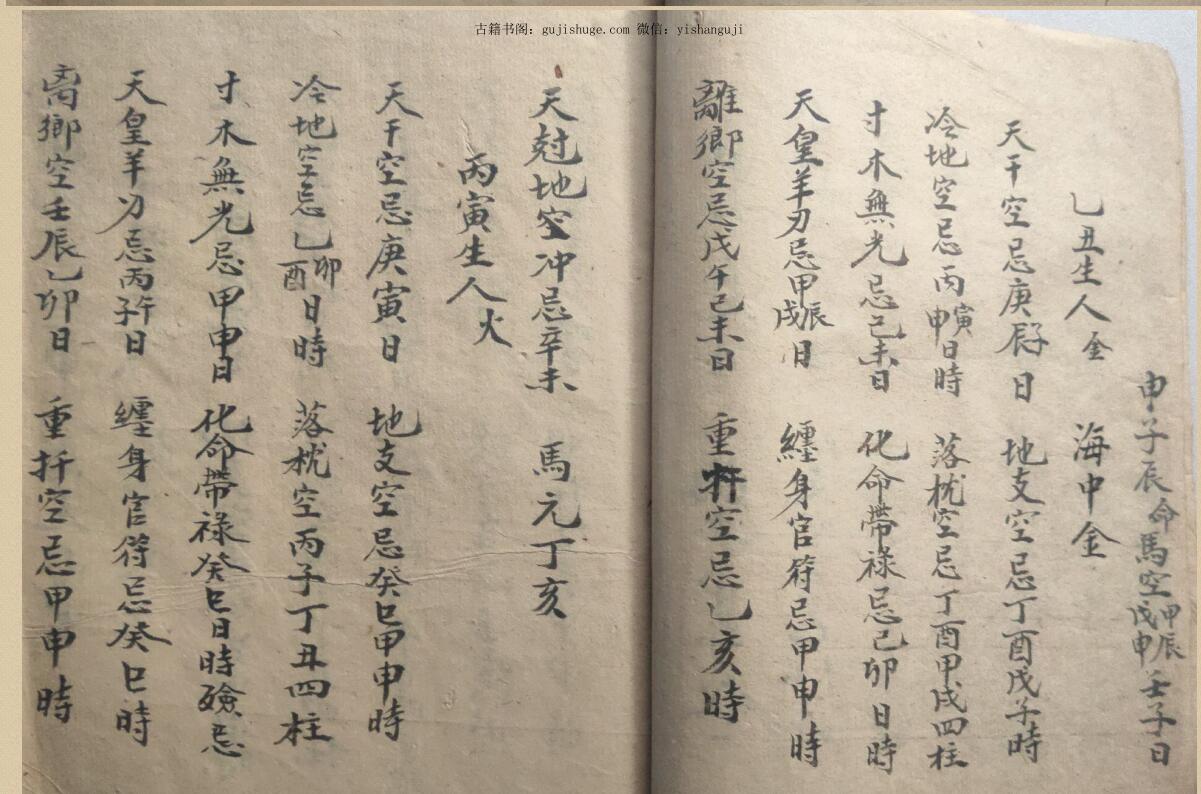 古籍书阁：gujishuge.com 微信：yishanguji
申子辰命馬空甲辰戊申壬子日
乙丑生人金 海中金
天干空忌庚辰子日 地支空忌丁酉戊子時
冷地空忌丙寅申日時 落枕空忌丁酉甲戌四柱
寸木無光忌己未日 化命帶祿忌己卯日時
天皇羊刃忌甲辰戌日 纏身官符忌甲申時
離鄉空忌戊午己未日 重空忌乙亥時
天尅地空冲忌辛未 馬元丁亥
丙寅生人火
天干空忌庚寅日 地支空忌癸巳甲申時
冷地空忌乙卯酉日時 落枕空丙子丁丑四柱
寸木無光忌甲申日 化命帶祿癸巳日時殮忌
天皇羊刃忌丙子午日 纏身官符忌癸巳時
离鄉空壬辰乙卯日 重扦空忌甲申時